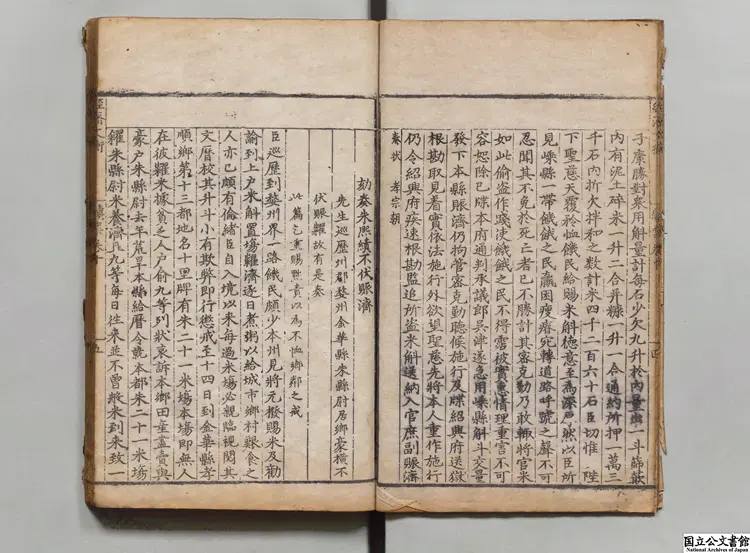 子廉勝對衆用解量計每石少欠九升於內量出一斗篩簸
內有泥土碎米一升二合并糠一升一合通約所押一萬三
千石內折欠拌和之數計米四千二百六十石臣切惟陛
下聖慈天覆於恤饑民給賜米斛德意至爲深厚然以臣所
見嵊縣一帶饑餓之民羸困瘦瘠宛轉道路呼號之聲不可
忍聞其不免於死亡者已不勝計其密克勤乃敢輒將官米
如此偷盜作踐使饑餓之民不得霑被實惠情理重害不可
容恕除已牒本府通判承議郎吳津遂急用嵊縣斛斗交量
發下本縣賑濟仍拘管密克勤聽候施行及牒紹興府送獄
根勘取見着實依法施行外欲望聖慈先將本人重作施行
仍令紹興府疾速根勘監追所盜米還納入官庶副賑濟
奏狀 孝宗朝
劾奏朱熙績不伏賑濟
先生巡歷州郡婺州金華縣朱縣尉居鄉豪橫不
伏賑糶故有是奏
此篇乞重賜黜責以爲不恤鄉鄰之戒
臣巡歷到婺州界一路饑民頗少本州見將元撥賜米及勸
諭到上户米斛置場糴濟逐日煮粥以給城市鄉村艱食之
人亦已頗有倫緒臣自入境以來每過米場必親臨視閱其
文曆校其升斗小有欺弊即行懲戒至十四日到金華縣孝
順鄉第十三都地名十里牌有朱二十一米場本場即無人
在彼糶米據貧乏人户俞九等列狀哀訴本鄉田產盡賣與
豪户朱縣尉去年荒旱本縣給曆令就本都朱二十一米場
糴朱縣尉米養濟且九等每日往來並不曾糴米到米致一
五
国立公文書館
National Archives of Japan